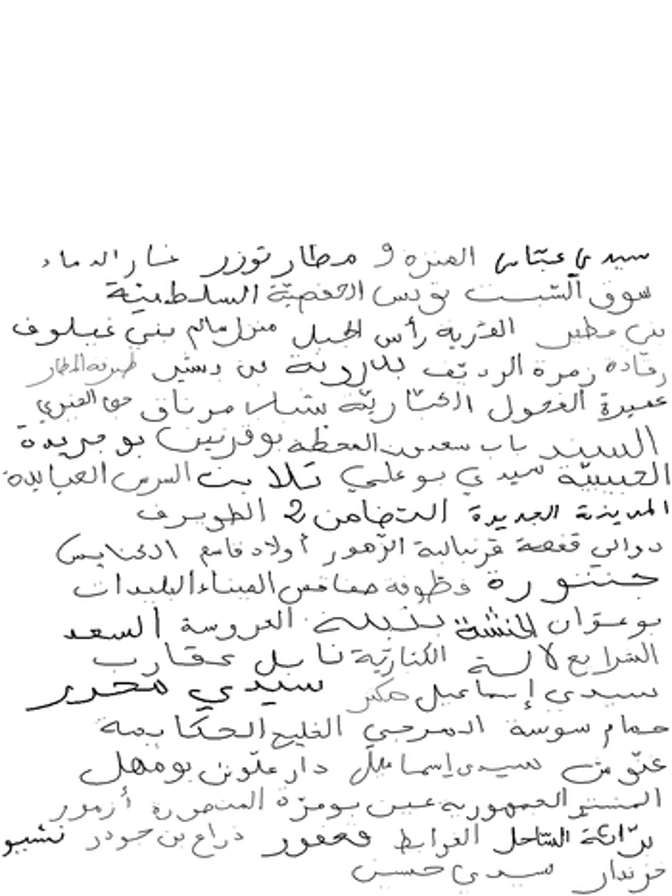 سيدي عبّاس المنزه 9 مطار توزر غار الدماء
سوق السبت تونس الحفصيّة السلطنيّة
بني مطير القرية رأس الجبل منزل سالم بني غيلوف
رقادة زمرة الرديف بدرونة بن بشير طبرقة المطار
عميرة الفحول الخبّاريّة شتاء مرناق حي الغيري
السند باب سعدون المحطة بوفرنين بو جريدة
الحبيبيّة سيدي بو علي تلابت السرس العبايدة
المدينة الجديدة التضامن 2 الطويرف
دوالي قفصة قرنبالية الزهور أولاد قاسم الكنايس
جنتورة وظوفه صفاقس الميناء البليدات
بوعوّان الخشة بنبلة العروسة السعد
الشرايع لالة الكنازيّة نابل عقارب
سيدي إسماعيل سيدي مخرر
حمام سوسة المرجى الخليج الحكايمة
عنّوش سيدي إسماعيل دار علّوش بومهل
المنستير الجمهورية عين بومرّة المنصورة أزمور
برّاكة السّاحل الفرايط قعفور ذراع بن جودر نشيو
خزندار سيدي حسين